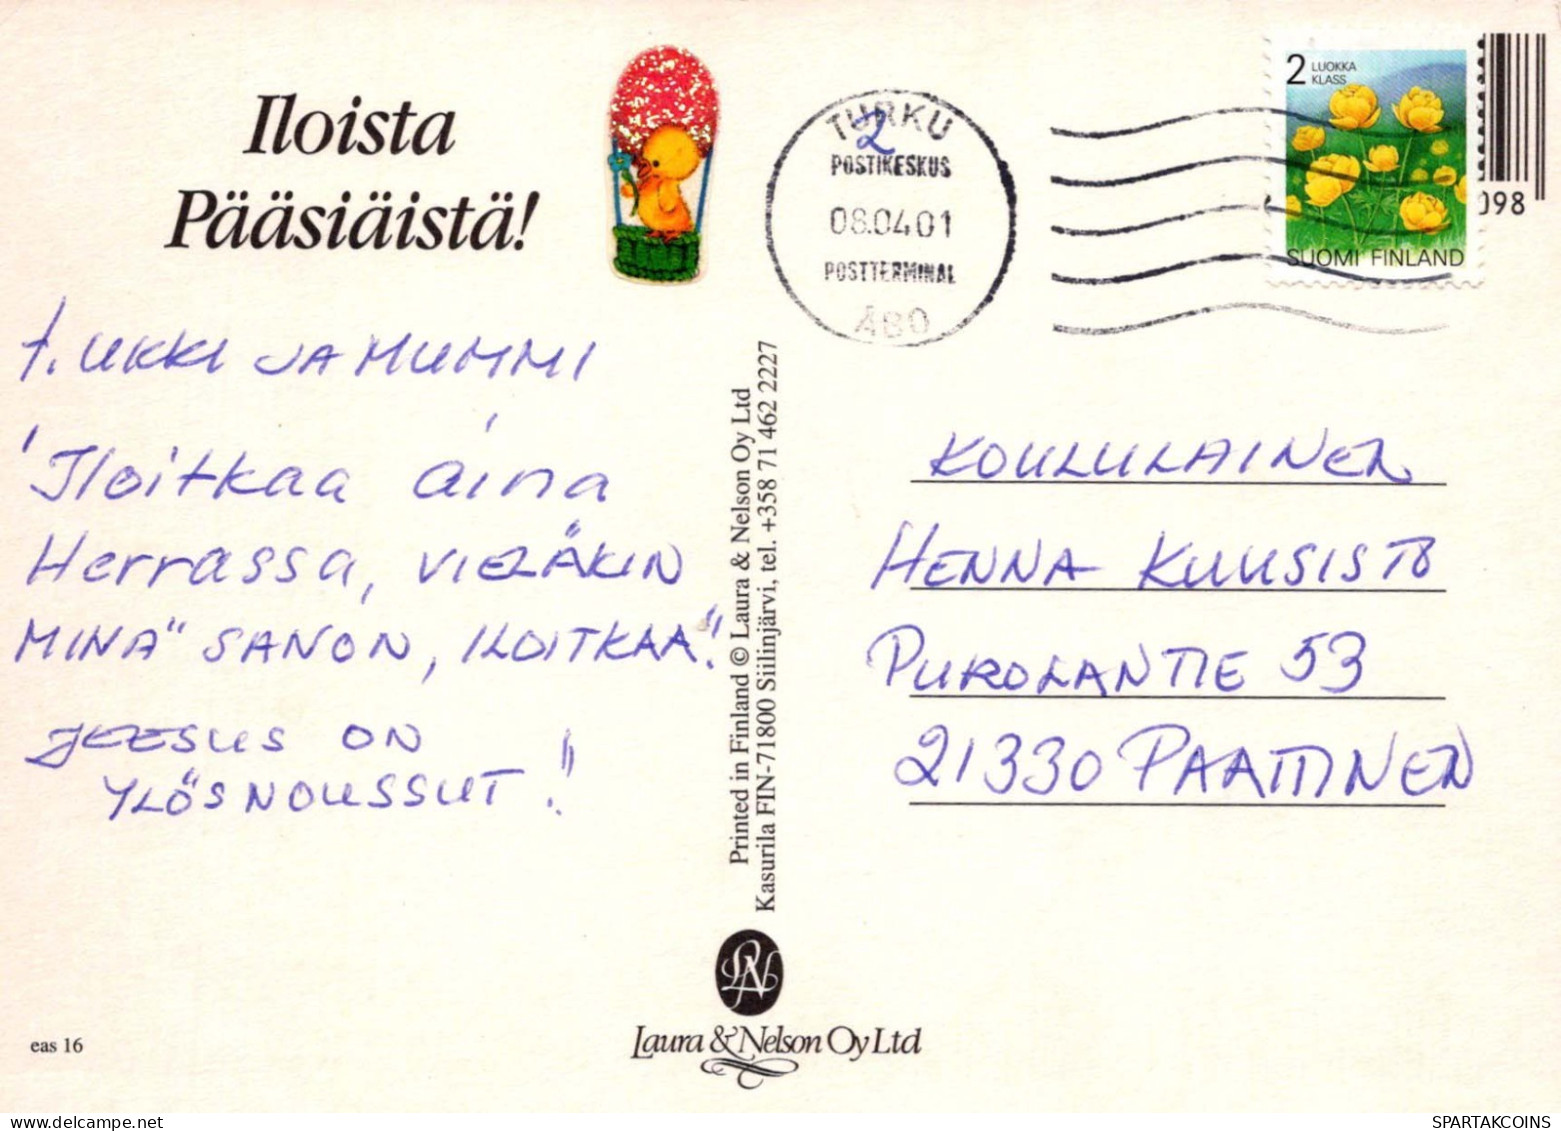 Iloista
Pääsiäistä!
TURKU
2
POSTIKESKUS
08.04.01
POSTTERMINAL
480
2 LUOKKA
KLASS
SUOMI FINLAND
098
t. UKKI JA MUMMI
"Iloitkaa aina
Herrassa, VIELÄKIN
MINÄ" SANON, ILOITKAA"!
JEESUS ON
YLÖSNOUSSUT!"
Printed in Finland © Laura & Nelson Oy Ltd
Kasurila FIN-71800 Siilinjärvi, tel. +358 71 462 2227
KOULULAINEN
HENNA KUUSISTO
PUROLANTIE 53
21330 PAATTINEN
LN
Laura & Nelson Oy Ltd
eas 16
SPARTAKCOINS